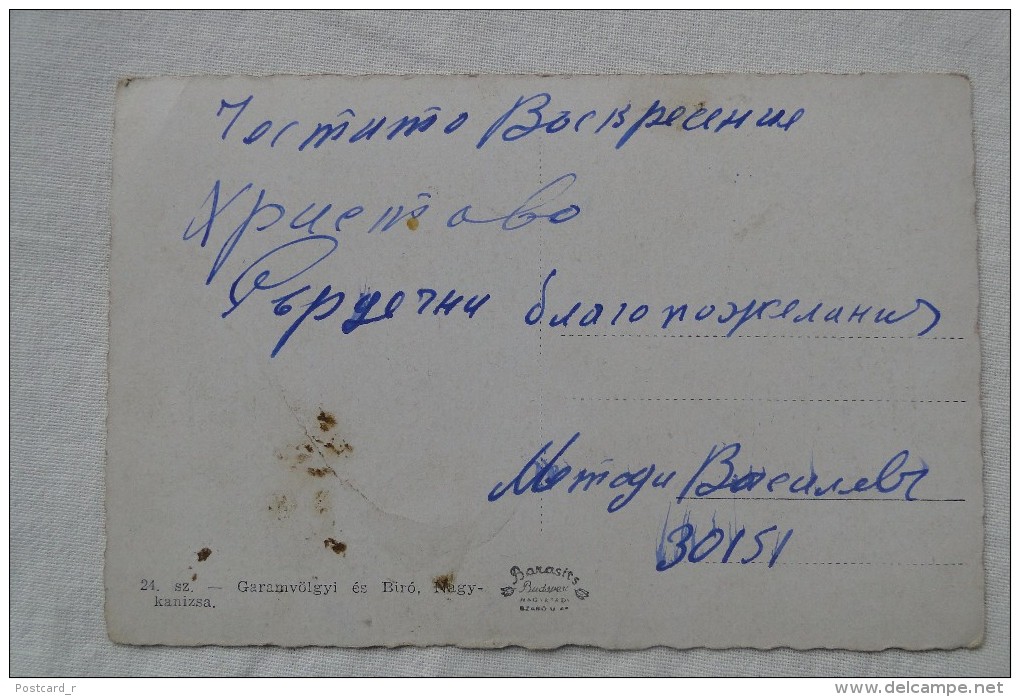 Честито Воскресение
Христово
Сърдечни благопожелания
Методи Василевъ
30151
24. sz. — Garamvölgyi és Biró, Nagy-
kanizsa.
Barasits
Budapest
Postcard_r
www.delcampe.net